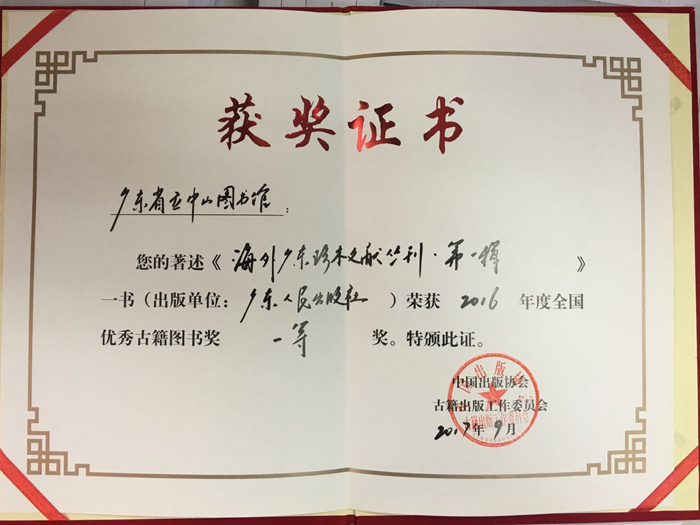 获奖证书
广东省立中山图书馆：
您的著述《海外广东珍本文献丛刊·第一辑》
一书（出版单位：广东人民出版社）荣获 2016 年度全国
优秀古籍图书奖 一等 奖。特颁此证。
中国出版协会
古籍出版工作委员会
2017年9月